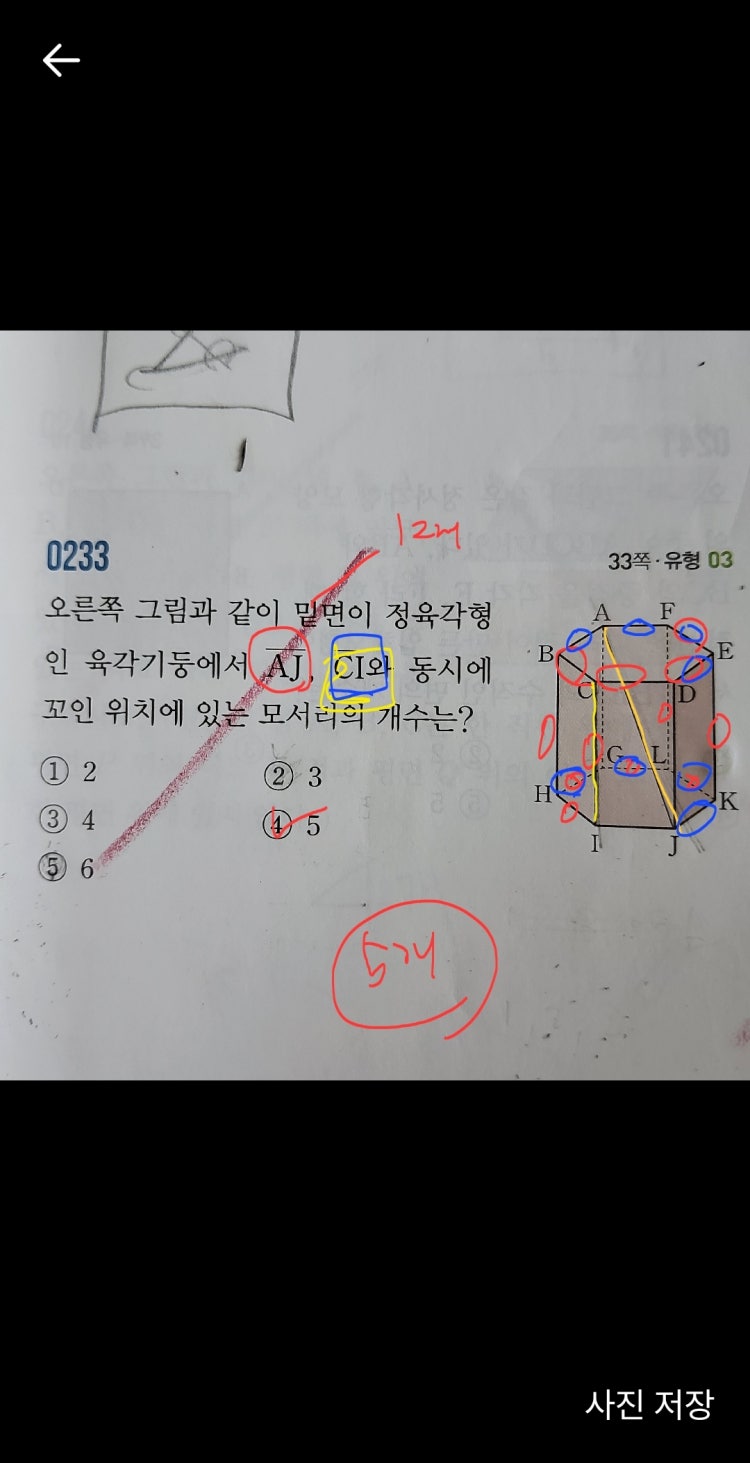 12개
0233
33쪽·유형 03
오른쪽 그림과 같이 밑면이 정육각형
인 육각기둥에서 AJ, CI와 동시에
꼬인 위치에 있는 모서리의 개수는?
① 2
② 3
③ 4
④ 5
⑤ 6
A
F
B
E
C
D
G
L
H
K
I
J
5개
사진 저장